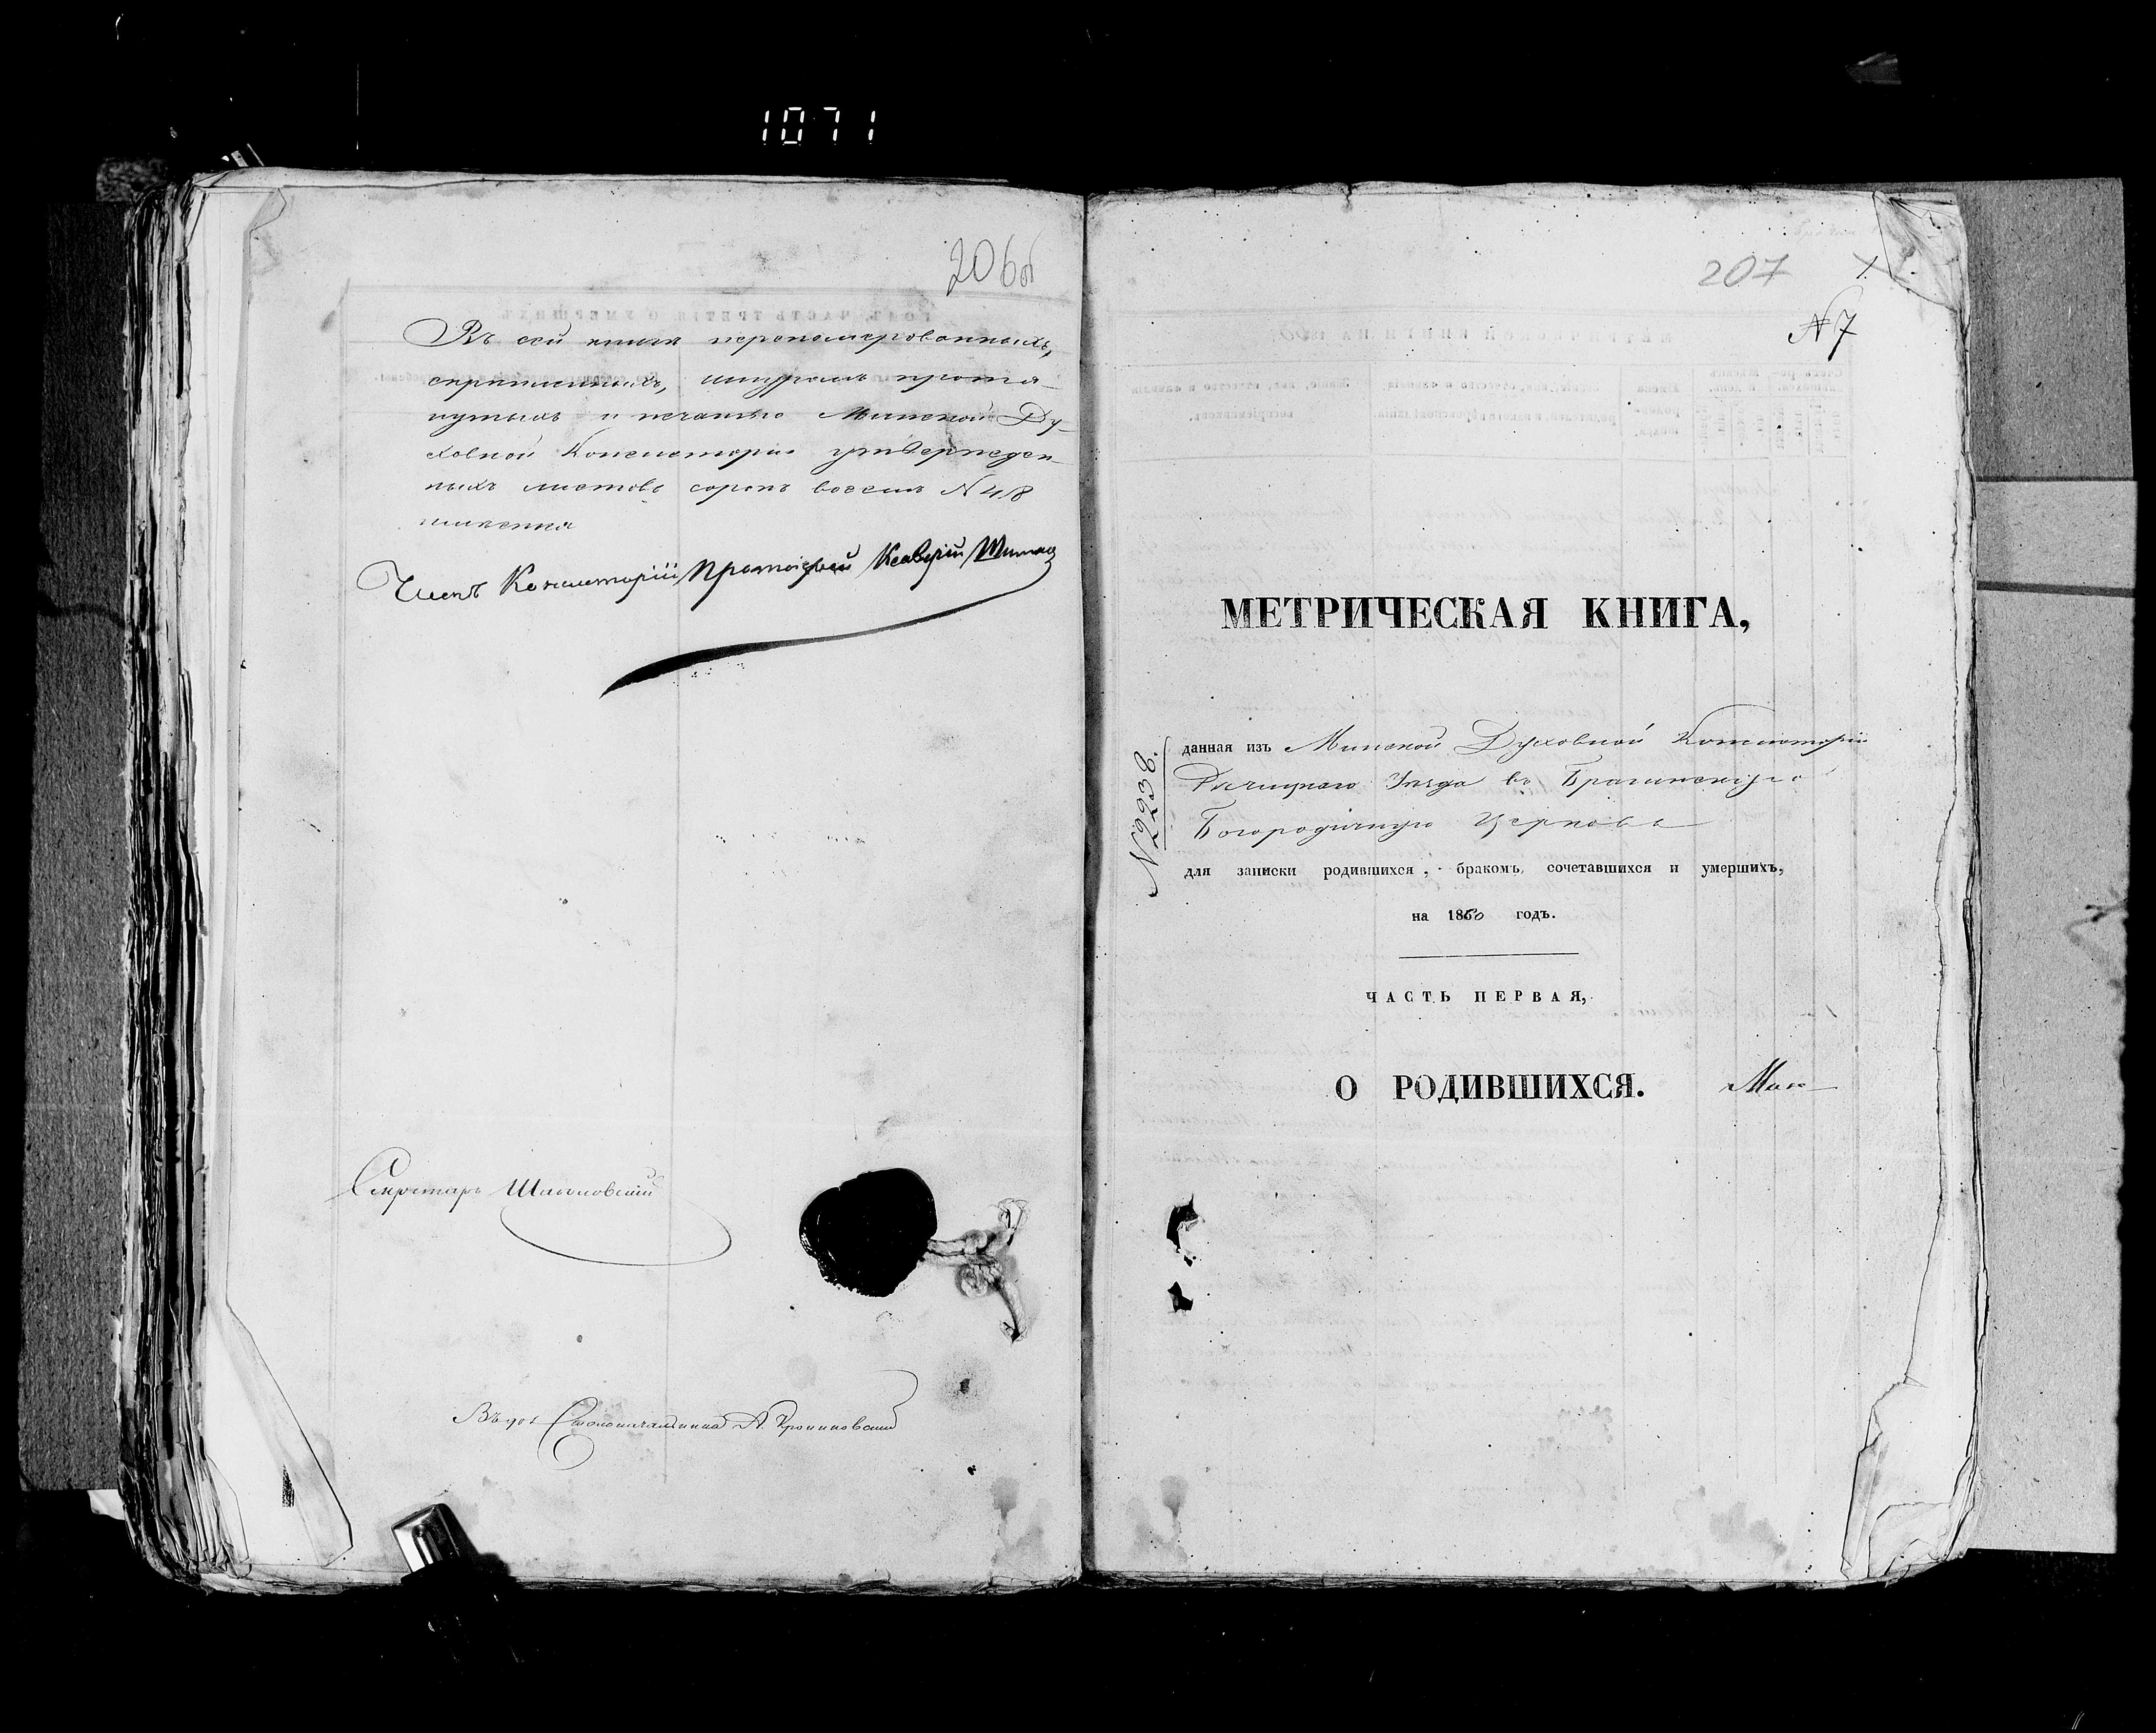 1071
206 об
Въ сей книге перенумерованныхъ,
скрепленныхъ, шнуромъ протя-
нутыхъ и печатью Минской Ду-
ховной Консисторіи утвержден-
ныхъ листовъ сорокъ восемь N 48
Членъ Консисторіи Протоіерей Ксаверій
Секретарь
Столоначальника А.
207
1.
N 7
МЕТРИЧЕСКАЯ КНИГА,
N 2236.
данная изъ Минской Духовной Консисторіи
Речицкаго Уезда въ Брагинскую
Богородичную Церковь
для записки родившихся, бракомъ сочетавшихся и умершихъ,
на 1860 годъ.
ЧАСТЬ ПЕРВАЯ,
О РОДИВШИХСЯ.